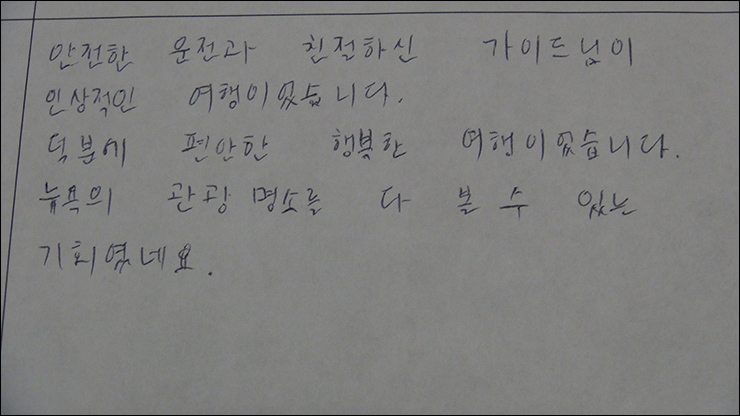 안전한 운전과 친절하신 가이드님이
인상적인 여행이었습니다.
덕분에 편안한 행복한 여행이었습니다.
뉴욕의 관광명소를 다 볼 수 있는
기회였네요.